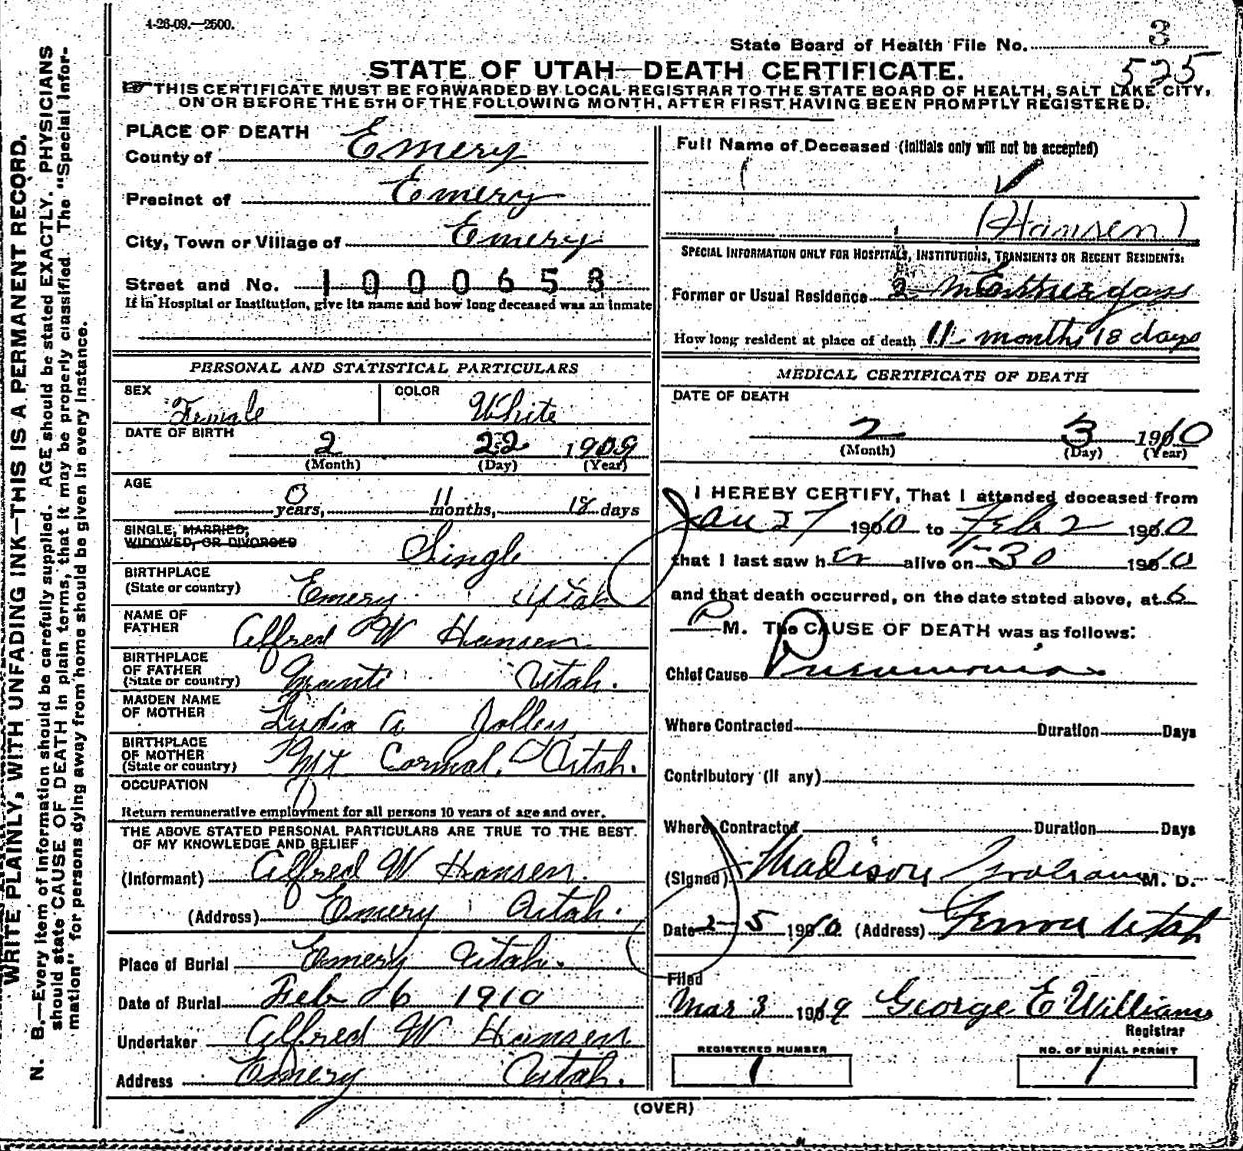 4-26-09.—2500.
State Board of Health File No. 3
525
STATE OF UTAH—DEATH CERTIFICATE.
THIS CERTIFICATE MUST BE FORWARDED BY LOCAL REGISTRAR TO THE STATE BOARD OF HEALTH, SALT LAKE CITY,
ON OR BEFORE THE 5TH OF THE FOLLOWING MONTH, AFTER FIRST HAVING BEEN PROMPTLY REGISTERED.
WRITE PLAINLY, WITH UNFADING INK—THIS IS A PERMANENT RECORD.
N. B.—Every item of information should be carefully supplied. AGE should be stated EXACTLY. PHYSICIANS
should state CAUSE OF DEATH in plain terms, that it may be properly classified. The "Special Infor-
mation" for persons dying away from home should be given in every instance.
PLACE OF DEATH
County of Emery
Precinct of Emery
City, Town or Village of Emery
Street and No. 1000658
If in Hospital or Institution, give its name and how long deceased was an inmate
PERSONAL AND STATISTICAL PARTICULARS
SEX Female COLOR White
DATE OF BIRTH 2 22 1909
(Month) (Day) (Year)
AGE
0 years, 11 months, 18 days
SINGLE, MARRIED,
WIDOWED, OR DIVORCED Single
BIRTHPLACE
(State or country) Emery Utah
NAME OF
FATHER Alfred W Hansen
BIRTHPLACE
OF FATHER
(State or country) Manti Utah.
MAIDEN NAME
OF MOTHER Lydia A Jolley
BIRTHPLACE
OF MOTHER
(State or country) Mt Carmal, Utah.
OCCUPATION
Return remunerative employment for all persons 10 years of age and over.
THE ABOVE STATED PERSONAL PARTICULARS ARE TRUE TO THE BEST
OF MY KNOWLEDGE AND BELIEF
(Informant) Alfred W Hansen
(Address) Emery Utah.
Place of Burial Emery Utah.
Date of Burial Feb 6 1910
Undertaker Alfred W Hansen
Address Emery Utah.
Full Name of Deceased (initials only will not be accepted)
(Hansen)
SPECIAL INFORMATION ONLY FOR HOSPITALS, INSTITUTIONS, TRANSIENTS OR RECENT RESIDENTS:
Former or Usual Residence
How long resident at place of death 11 months 18 days
MEDICAL CERTIFICATE OF DEATH
DATE OF DEATH
2 3 1910
(Month) (Day) (Year)
I HEREBY CERTIFY, That I attended deceased from
Jan 27 1910 to Feb 2 1910
that I last saw her alive on 1-30 1910
and that death occurred, on the date stated above, at 6
P M. The CAUSE OF DEATH was as follows:
Chief Cause Pneumonia
Where Contracted Duration Days
Contributory (if any)
Where Contracted Duration Days
(Signed) Madison M. D.
Date 2-5 1910 (Address) Ferron Utah
Filed
Mar 3 19 George E Williams
Registrar
REGISTERED NUMBER
1
NO. OF BURIAL PERMIT
1
(OVER)